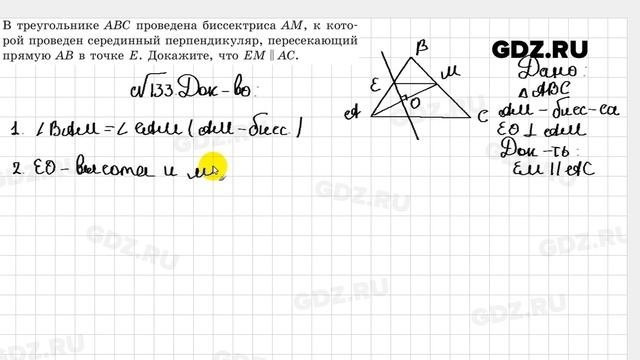 В треугольнике ABC проведена биссектриса AM, к кото-
рой проведен серединный перпендикуляр, пересекающий
прямую AB в точке E. Докажите, что EM ∥ AC.
GDZ.RU
№133 Док-во:
1. ∠BAM = ∠CAM (AM - бисс.)
2. EO - высота и
B
E
M
O
A
C
Дано:
△ABC
AM - бисс-са
EO ⊥ AM
Док-ть:
EM || AC
GDZ.RU
GDZ.RU
GDZ.RU
GDZ.RU
GDZ.RU
GDZ.RU